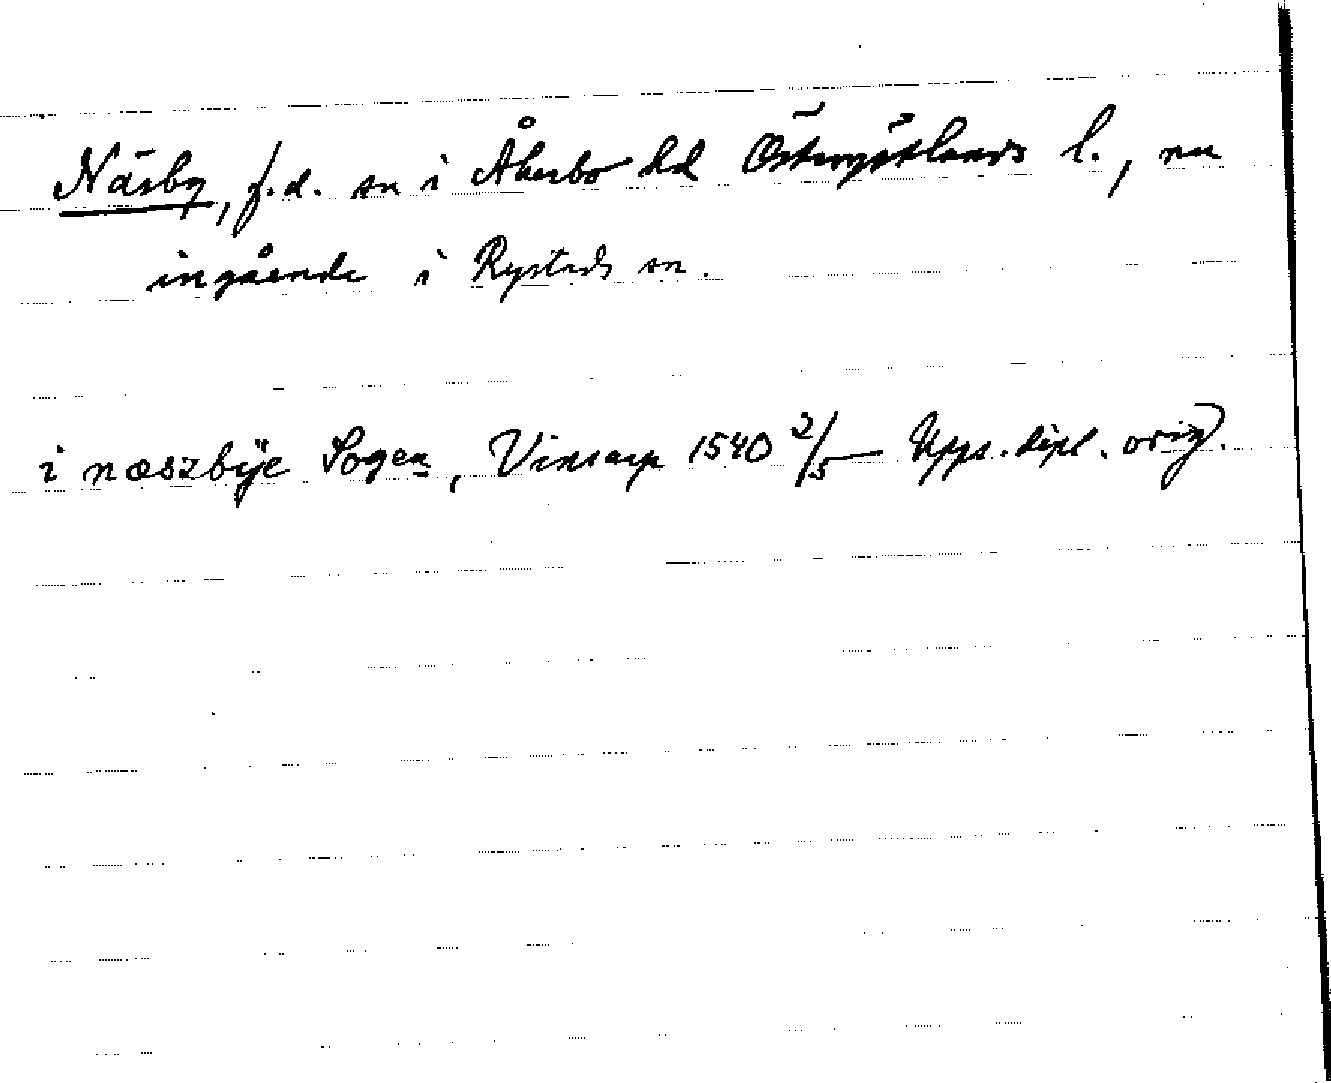 Näsby, f.d. sn i Åkerbo hd Östergötlands l., nu
ingående i Rystads sn.
i næszbÿe Sogen, Vinsarp 1540 2/5 — Upps. dipl. orig.